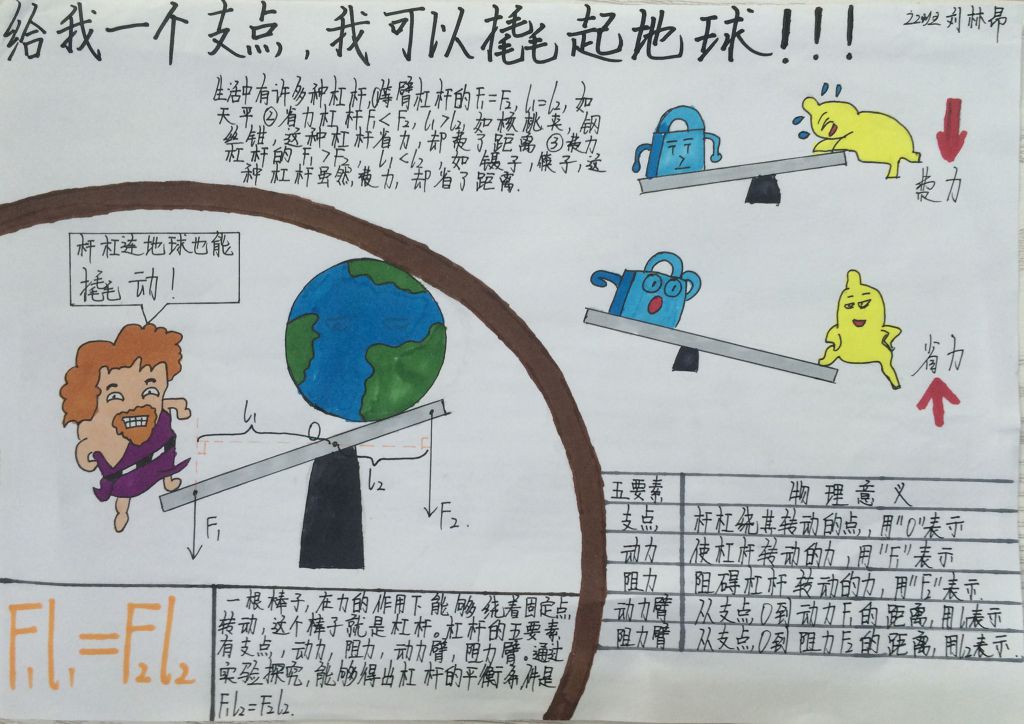 给我一个支点,我可以撬起地球!!!
2212 刘林昂
生活中有许多种杠杆,①等臂杠杆的F₁=F₂,l₁=l₂,如
天平 ②省力杠杆F₁<F₂,l₁>l₂,如核桃夹,钢
丝钳,这种杠杆省力,却费了距离 ③费力
杠杆的F₁>F₂,l₁<l₂,如镊子,筷子,这
种杠杆虽然费力,却省了距离.
费力
省力
杆杠连地球也能
撬动!
l₁
O
l₂
F₁
F₂.
五要素 物理意义
支点 杆杠绕其转动的点,用"O"表示
动力 使杠杆转动的力,用"F₁"表示
阻力 阻碍杠杆转动的力,用"F₂"表示.
动力臂 从支点O到动力F₁的距离,用l₁表示
阻力臂 从支点O到阻力F₂的距离,用l₂表示.
F₁l₁=F₂l₂
一根棒子,在力的作用下能够绕着固定点
转动,这个棒子就是杠杆。杠杆的五要素
有支点,动力,阻力,动力臂,阻力臂。通过
实验探究,能够得出杠杆的平衡条件是
F₁l₂=F₂l₂.